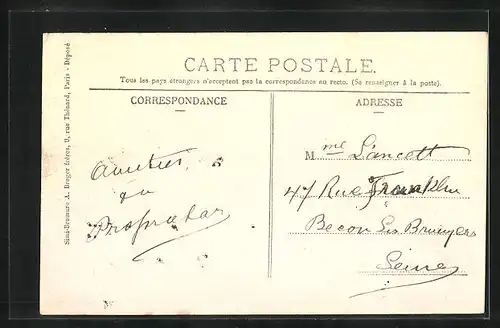 CARTE POSTALE.
Tous les pays étrangers n'acceptent pas la correspondance au recto. (Se renseigner à la poste).
CORRESPONDANCE
ADRESSE
Simi-Bromure A. Breger frères, 9, rue Thénard, Paris - Déposé
Amitiés
du
Propriétar
Mme Lancott
47 Rue Franklin
Becon Les Bruyères
Seine